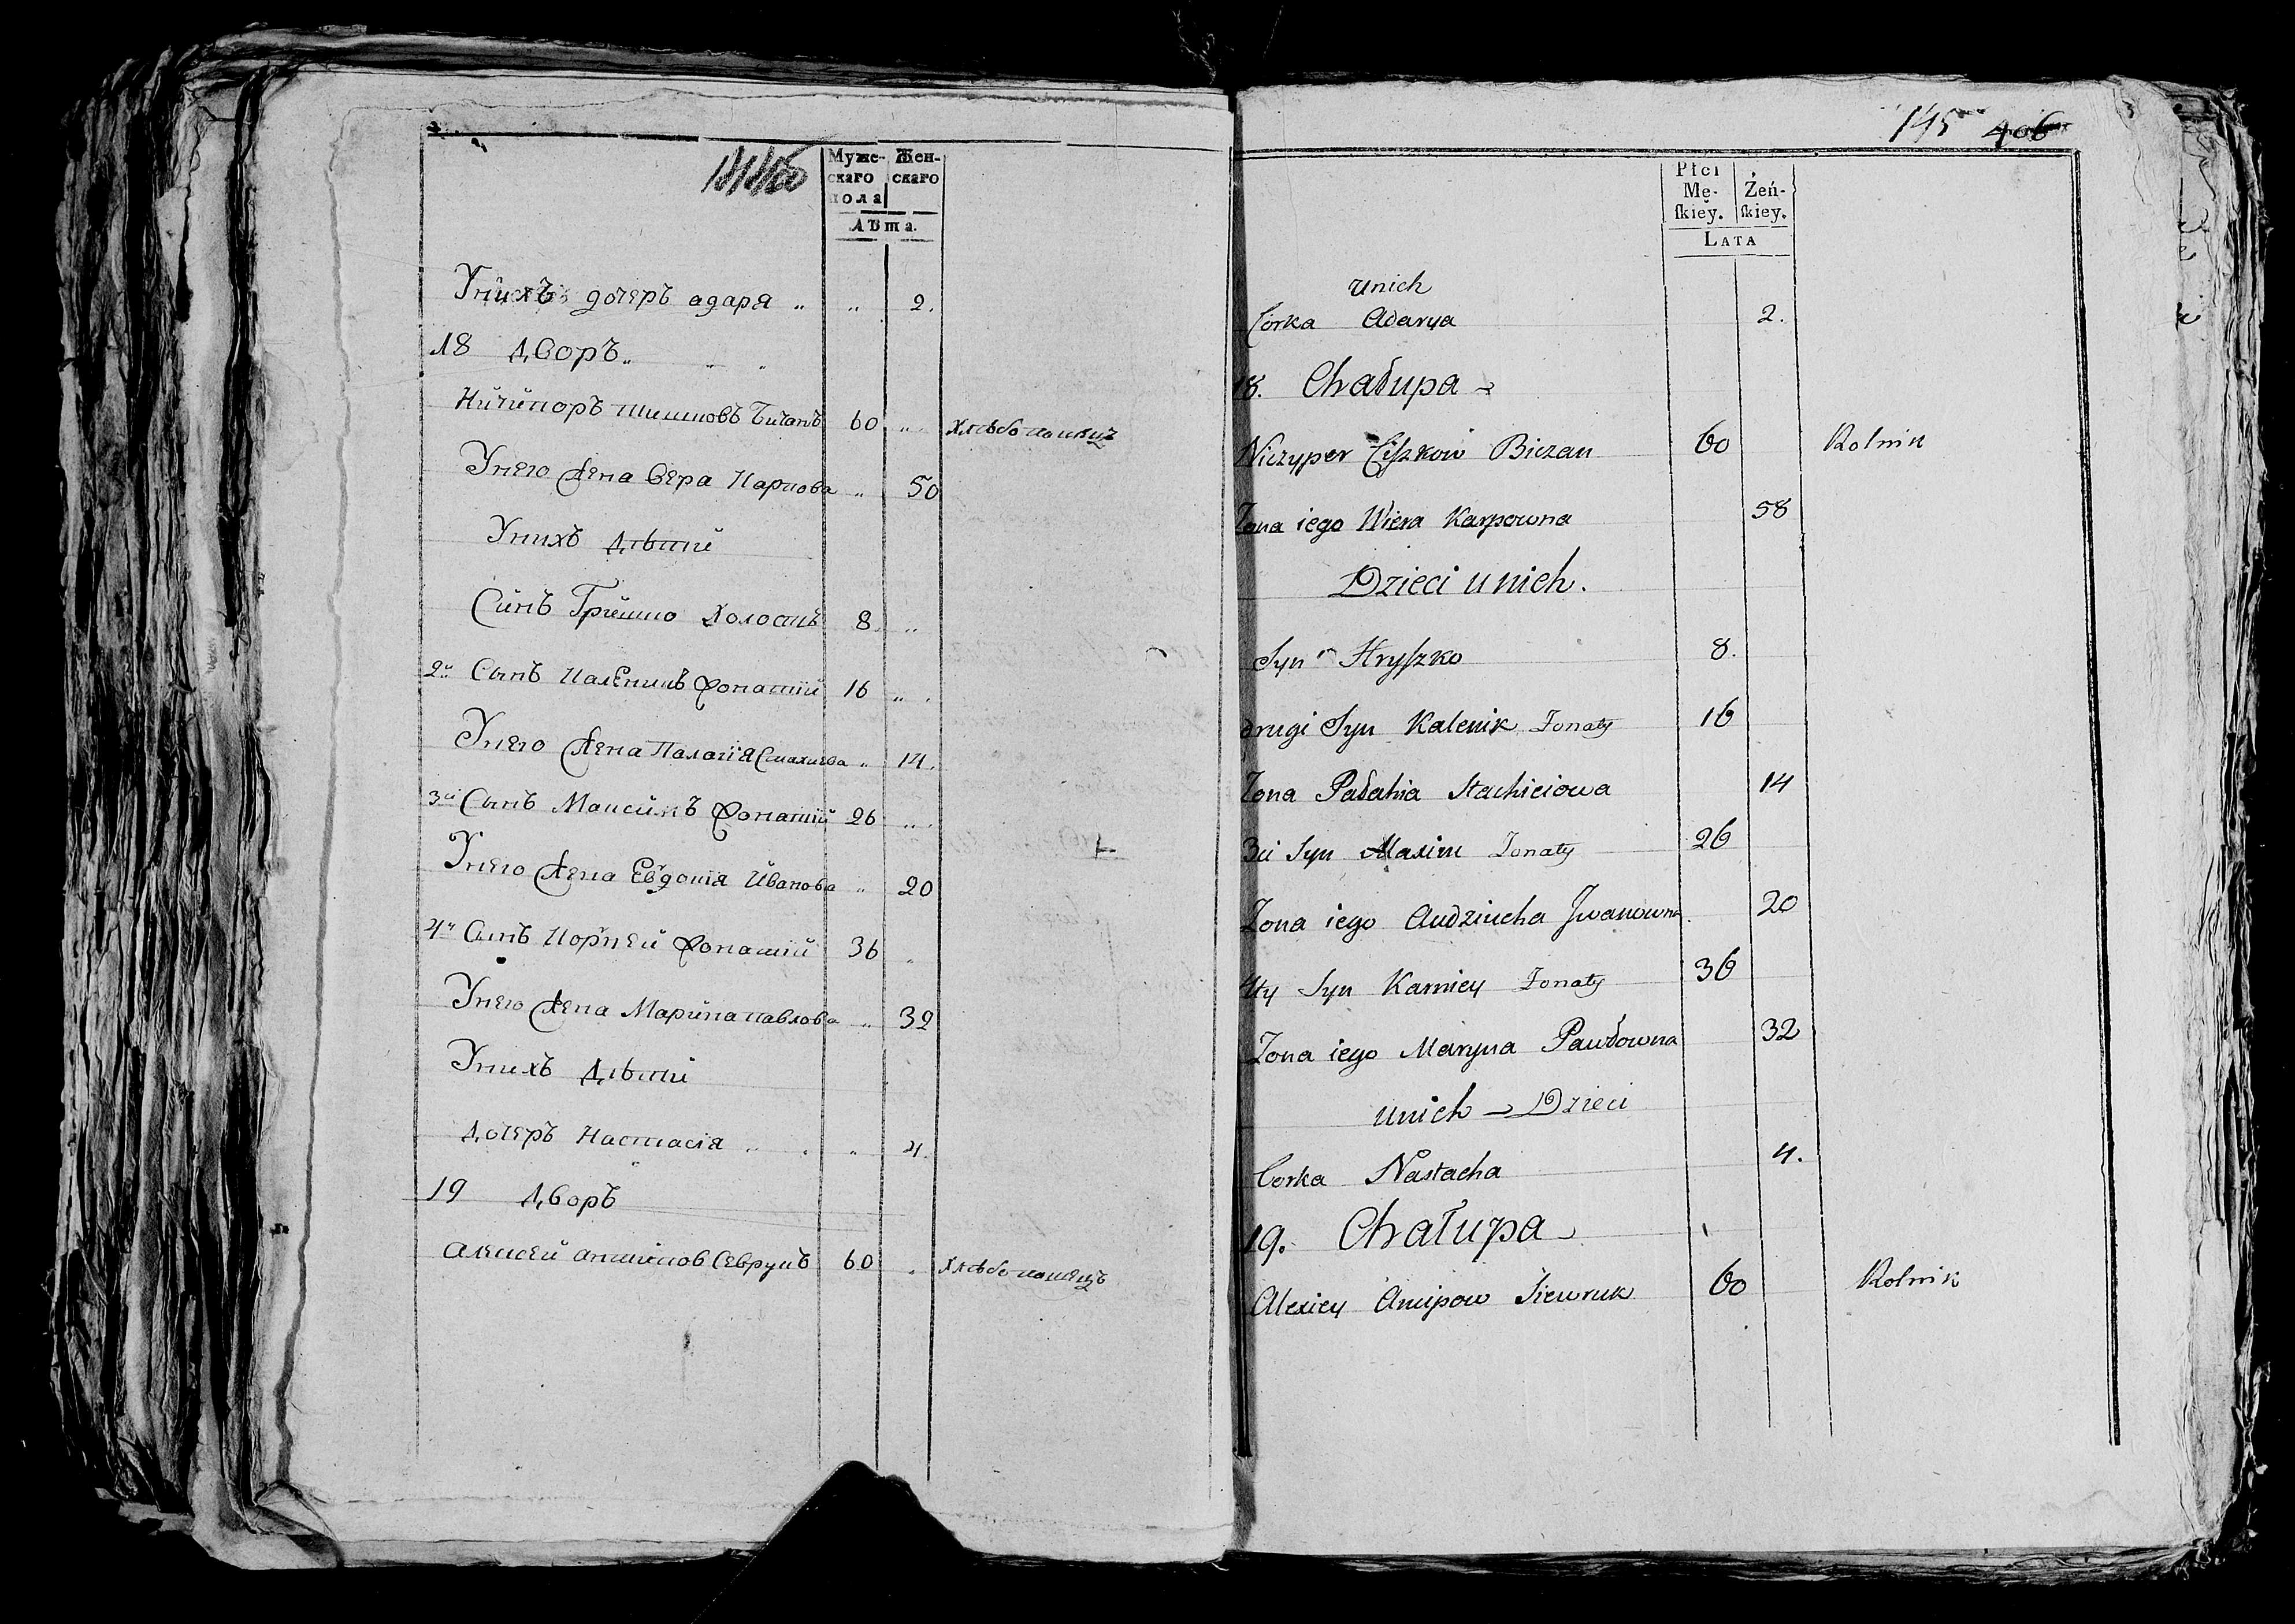 Муже- Жен-
скаго скаго
пола
Лѣта.
Унихъ дочеръ адаря „ „ 2.
18 Дворъ „ „ „
Ничипоръ тишковъ Бичанъ 60 „ „ хлѣбопашецъ
Унего жена вера Карпова „ 50
Унихъ Дѣтiй
Синъ Гришко холостъ 8. „
2й Сынъ Каленикъ жонатiй 16 „
Унего жена Палагiя Стахиева „ 14.
3й Сынъ Максимъ жонатiй 26 „
Унего жена Евдокiя Иванова „ 20
4й Синъ Корней жонатiй 36 „
Унего жена Марина павлова „ 32
Унихъ Дѣтiй
Дочеръ Настасiя „ „ „ 4.
19 Дворъ
алексей антипов Севрукъ 60 „ хлѣбопашецъ
145 406
Płci
Mę- Żeń-
ſkiey. ſkiey.
LATA
unich
Corka Adarya 2.
18. Chałupa
Niczyper Ciſzkow Biczan 60 Rolnik
Zona iego Wiera Karpowna 58
Dzieci unich.
Syn Hryſzko 8.
drugi Syn Kalenik Zonaty 16
Zona Pałahia Stachieiowa 14
3ci Syn Maxim Zonaty 26
Zona iego Audziucha Jwanowna. 20
4ty Syn Karniey Zonaty 36
Zona iego Maryna Pawłowna 32
unich Dzieci
Corka Nastacha 4.
19. Chałupa
Alexiey Ancipow Siewruk 60 Rolnik